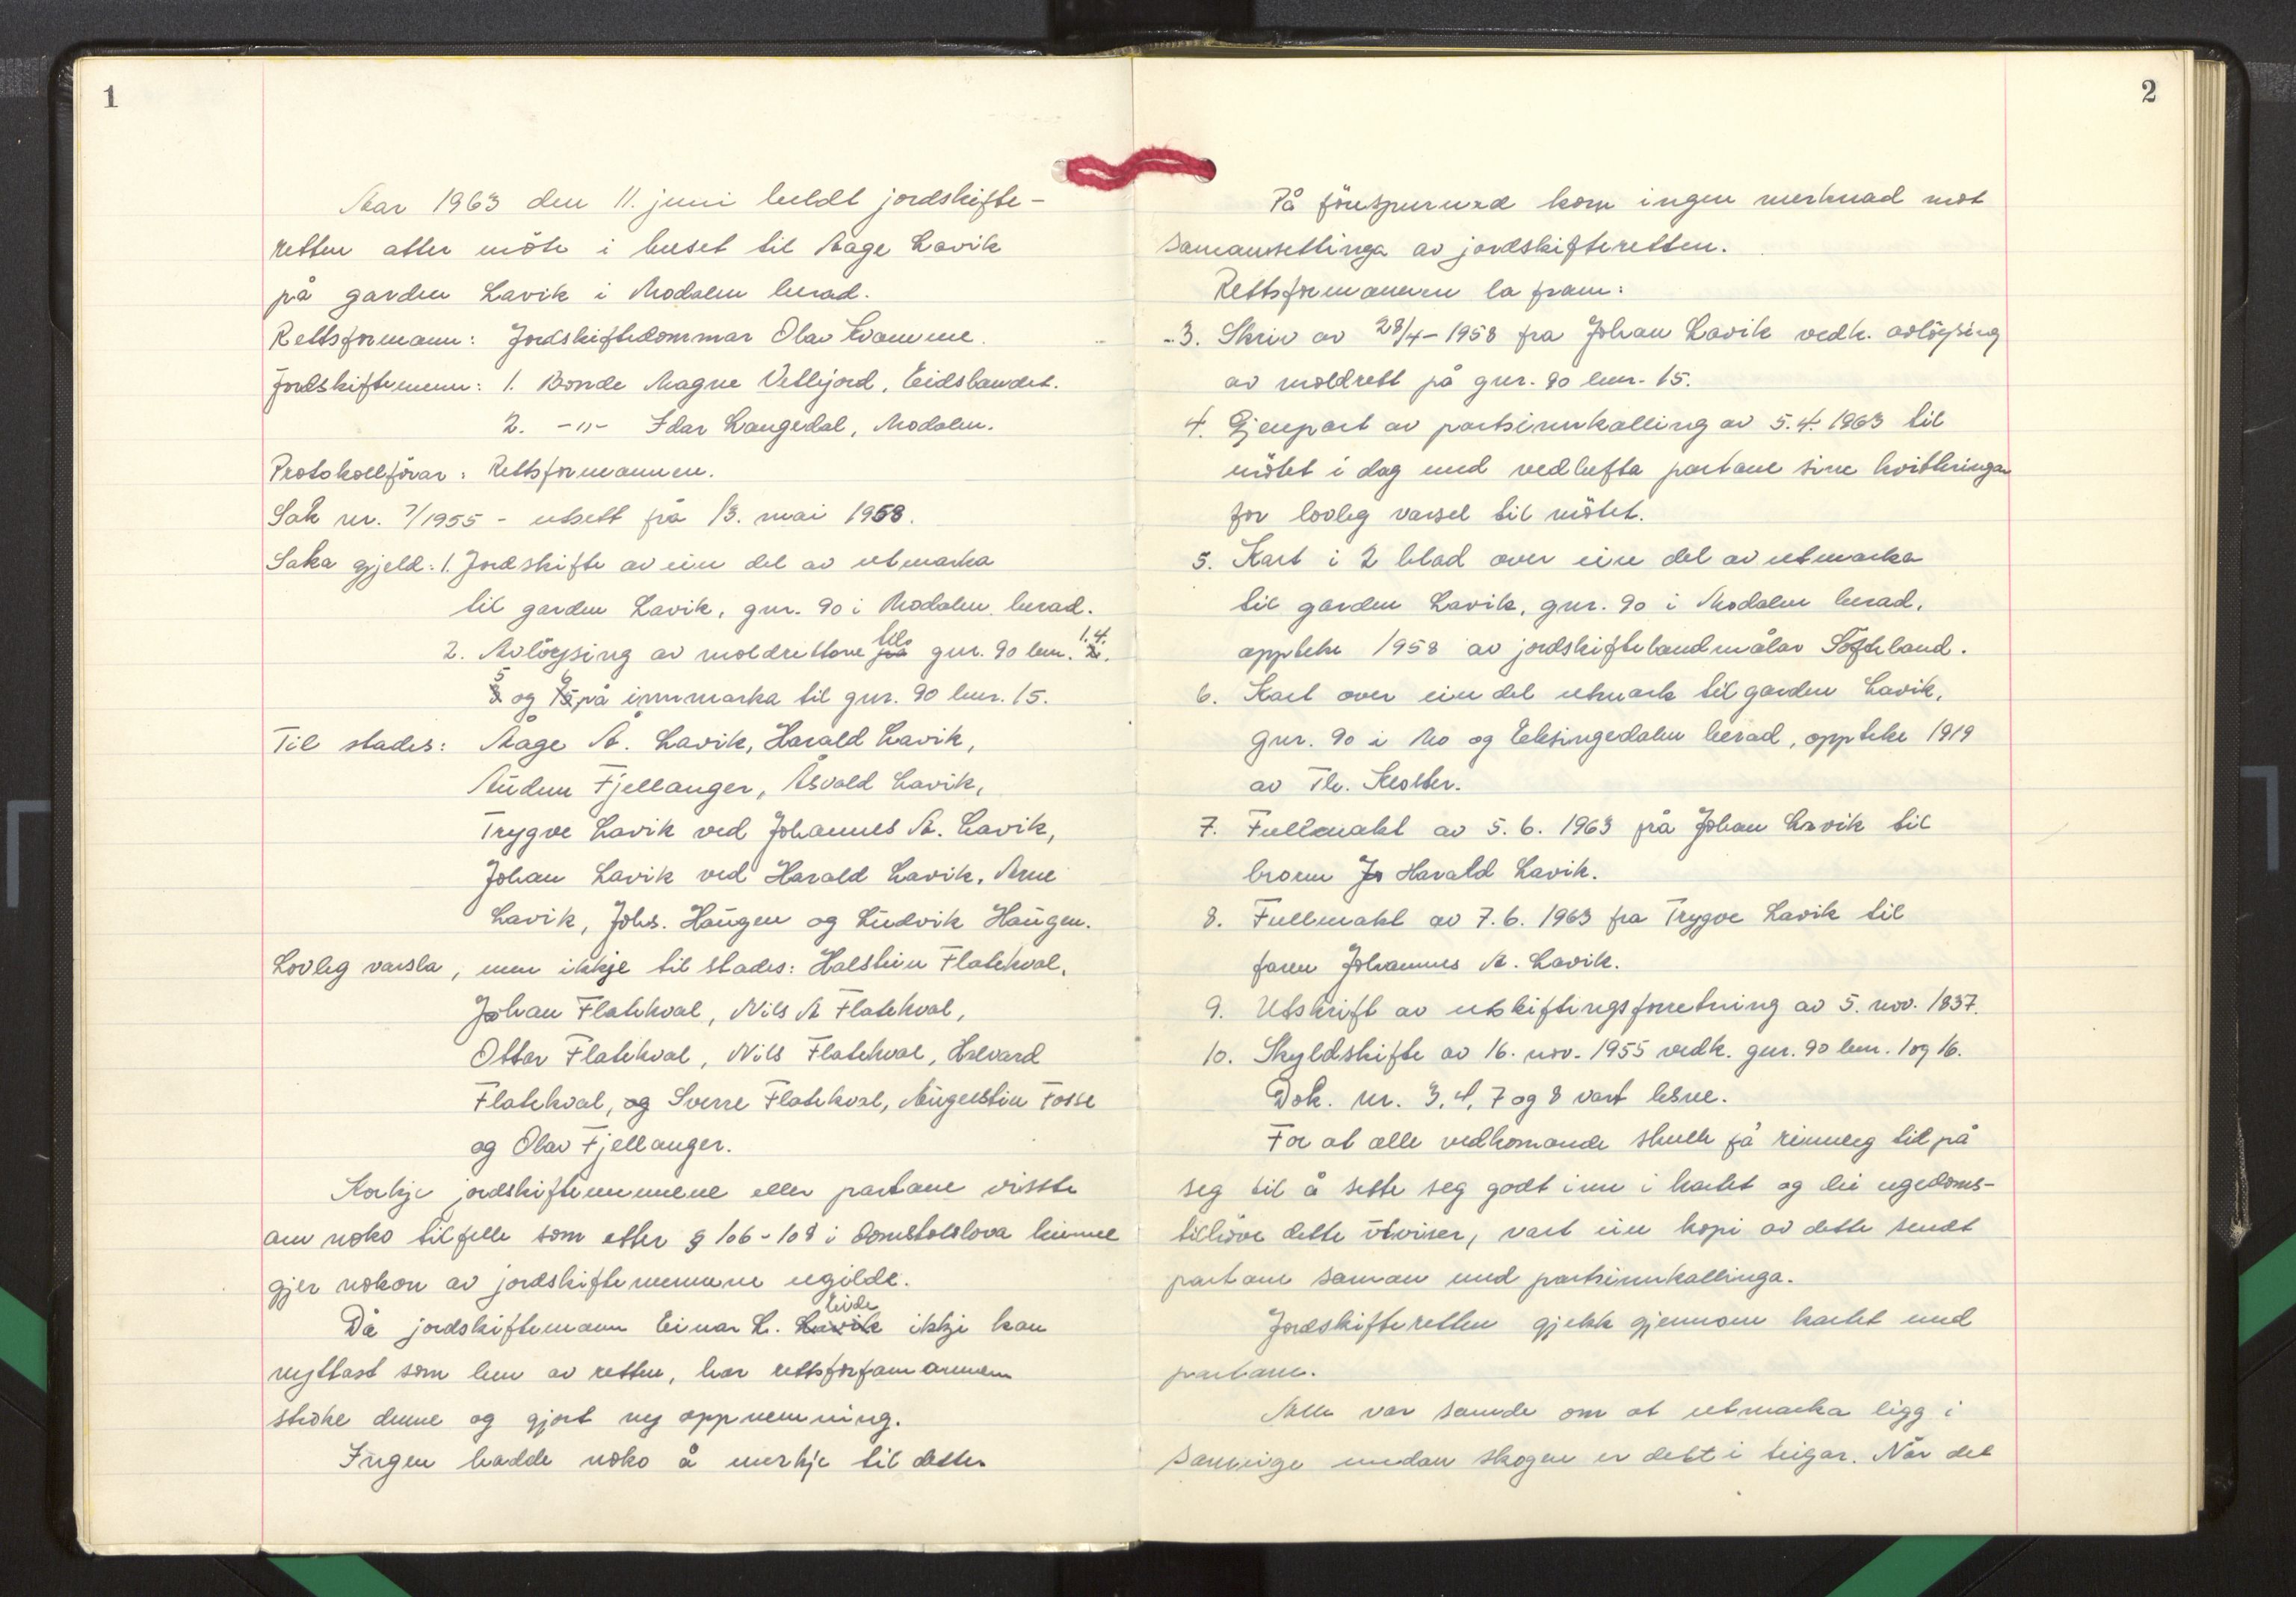 1
Aar 1963 den 11. juni heldt jordskifte-
retten atter möte i huset til Aage Lavik
på garden Lavik i Modalen herad.
Rettsformann: Jordskiftedommar Olav Kvamme.
Jordskiftemenn: 1. Bonde Magne Vetlejord, Eidslandet.
2. -"- Idar Langedal, Modalen.
Protokollförar: Rettsformannen.
Sak nr. 7/1955 - utsett frå 13. mai 1958.
Saka gjeld: 1. Jordskifte av ein del av utmarka
til garden Lavik, gnr. 90 i Modalen herad.
2. Avlöysing av moldrettane på til gnr. 90 bnr. 2. 1. 4.
5 og 6 på innmarka til gnr. 90 bnr. 15.
Til stades: Åage A. Lavik, Harald Lavik,
Audun Fjellanger, Åsvald Lavik,
Trygve Lavik ved Johannes A. Lavik,
Johan Lavik ved Harald Lavik, Arne
Lavik, Johs. Haugen og Ludvik Haugen.
Lovleg varsla, men ikkje til stades: Halstein Flatekval,
Johan Flatekval, Nils A Flatekval,
Ottar Flatekval, Nils Flatekval, Halvard
Flatekval, og Sverre Flatekval, Augustin Fosse
og Olav Fjellanger.
Korkje jordskiftemennene eller partane visste
om noko tilfelle som etter § 106-108 i domstolslova kunne
gjer nokon av jordskiftemennene ugilde.
Då jordskiftemann Einar L. Lavik Eide ikkje kan
nyttast som lem av retten, har rettsforfamannen
stroke denne og gjort ny oppnemning.
Ingen hadde noko å merkje til dette.
2
På förespurnad kom ingen merknad mot
samansettinga av jordskifteretten.
Rettsformannen la fram:
3. Skriv av 28/4-1958 fra Johan Lavik vedk. avlöysing
av moldrett på gnr. 90 bnr. 15.
4. Gjenpart av partsinnkalling av 5.4.1963 til
mötet i dag med vedhefta partane sine kvitteringar
for lovleg varsel til mötet.
5. Kart i 2 blad over ein del av utmarka
til garden Lavik, gnr. 90 i Modalen herad,
oppteke 1958 av jordskiftelandmålar Softeland.
6. Kart over ein del utmark til garden Lavik,
gnr. 90 i Mo og Eksingedalen herad, oppteke 1919
av Th.
7. Fullmakt av 5.6.1963 frå Johan Lavik til
broren Jo Harald Lavik.
8. Fullmakt av 7.6.1963 fra Trygve Lavik til
faren Johannes A. Lavik.
9. Utskrift av utskiftingsforretning av 5. nov. 1837.
10. Skyldskifte av 16. nov. 1955 vedk. gnr. 90 bnr. 1 og 16.
Dok. nr. 3, 4, 7 og 8 vart lesne.
For at alle vedkomande skulle få rimeleg tid på
seg til å sette seg godt inn i kartet og dei egedoms-
tilhöve dette utviser, vart ein kopi av dette sendt
partane saman med partsinnkallinga.
Jordskifteretten gjekk gjennom kartet med
partane.
Alle var samde om at utmarka ligg i
sameige medan skogen er delt i teigar. Når det